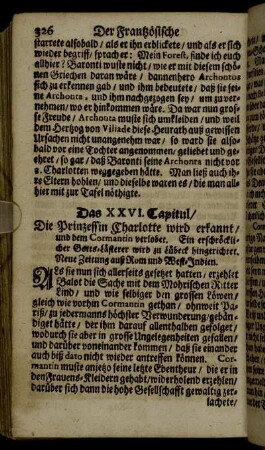 326 Der Frantzösische
starrete alsobald / als er ihn erblickete / und als er sich
wieder begriff / sprach er: Mein Forest. finde ich euch
allhier? Baronti wuste nicht / wie er mit diesem schö-
nen Griechen daran wäre / dannenhero Archontus
sich zu erkennen gab / und ihm bedeutete / daß sie seine
Archonta, und ihm nachgezogen sey / um zu ver-
nehmen / wo er hinkommen wäre. Da war nun gros-
se Freude / Archonta muste sich umkleiden / und weil
dem Hertzog von Villade diese Heurath auß gewissen
Ursachen nicht unangenehm war / so ward sie also
vor eine Tochter angenommen / geliebet und ge-
ehret / so gar / daß Baronti seine Archonta nicht vor
2. Charlotten weggegeben hätte. Man ließ auch ih-
re Eltern hohlen / und dieselbe waren es / die man all-
hier mit zur Tafel nöthigte.
Das XXVI. Capitul /
Die Prinzessin Charlotte wird erkannt /
und dem Cormantin verlobet. Ein erschröckli-
cher Gotts-Lästerer wird zu Lübeck hingerichtet.
Neue Zeitung auß Rom und West-Indien.
Als sie nun sich allerseits gesetzet hatten / erzehlet
Balot die Sache mit dem Mohrischen Ritter
und / und wie selbiger den grossen Löwen /
gleich wie vorhin Cormantin gethan / ohnweit Pa-
riß / zu jedermanns höchster Verwunderung / gebän-
diget hätte / der ihm darauf allenthalben gefolget /
wodurch sie aber in grosse Ungelegenheiten gefallen /
und darüber voneinander kommen / daß sie einander
auch biß dato nicht wieder antreffen können. Cor-
mantin muste anjetzo seine letzte Ebentheur / die er in
den Frauens-Kleidern gehabt / widerholend erzehlen /
darüber sich dann die hohe Gesellschafft gewaltig zer-
lachete /